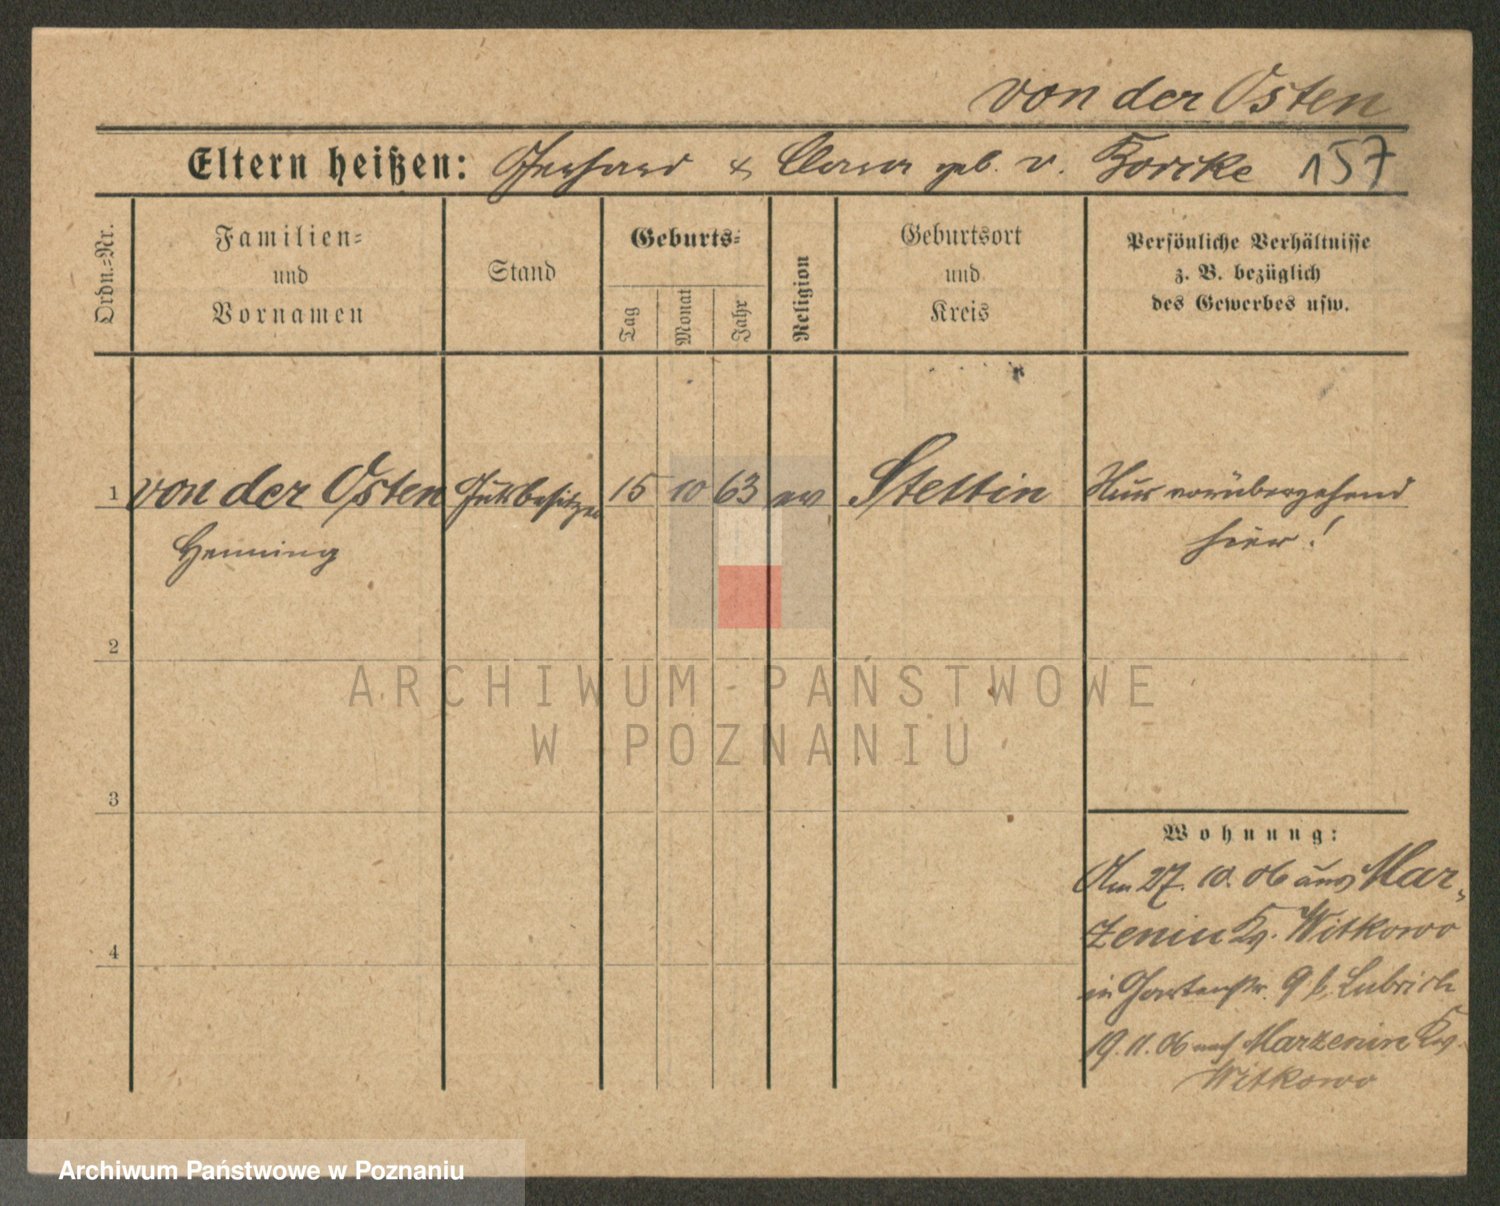 von der Osten
Eltern heißen: Gerhard & Clara geb. v. Borcke 157
Ordn.-Nr.
Familien-
und
Vornamen
Stand
Geburts-
Tag
Monat
Jahr
Religion
Geburtsort
und
Kreis
Persönliche Verhältnisse
z. B. bezüglich
des Gewerbes usw.
1 von der Osten Gutsbesitzer 15 10 63 ev Stettin Nur vorübergehend
Henning hier!
2
3
4
Wohnung:
Am 27. 10. 06 aus Mar-
zenin Kr. Witkowo
in Gartenstr. 9 b. Lubrich
19. 11. 06 nach Marzenin Kr.
Witkowo
ARCHIWUM PAŃSTWOWE
W POZNANIU
Archiwum Państwowe w Poznaniu